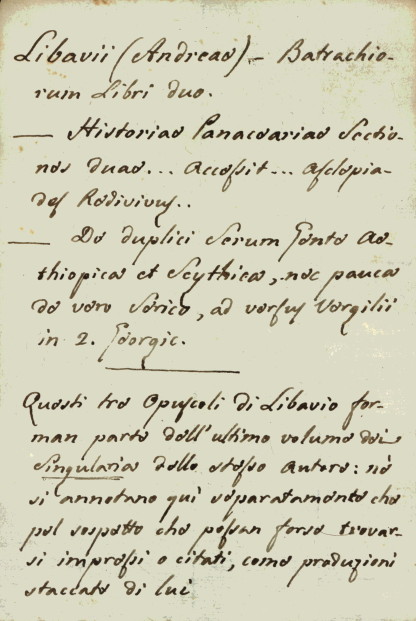 Libavii (Andreae) – Batrachio-
rum Libri duo.
— Historiae Panaceariae Sectio-
nes duae... Accessit... Asclepia-
des Redivivus..
— De duplici Serum gente Ae-
thiopica et Scythica, nec pauca
de vero Serico, ad versus Vergilii
in 2. Georgic.
Questi tre Opuscoli di Libavio for-
man parte dell'ultimo volume dei
Singularia dello stesso Autore: nè
si annotano quì separatamente che
pel sospetto che possan forse trovar-
si impressi o citati, come produzioni
staccate di lui